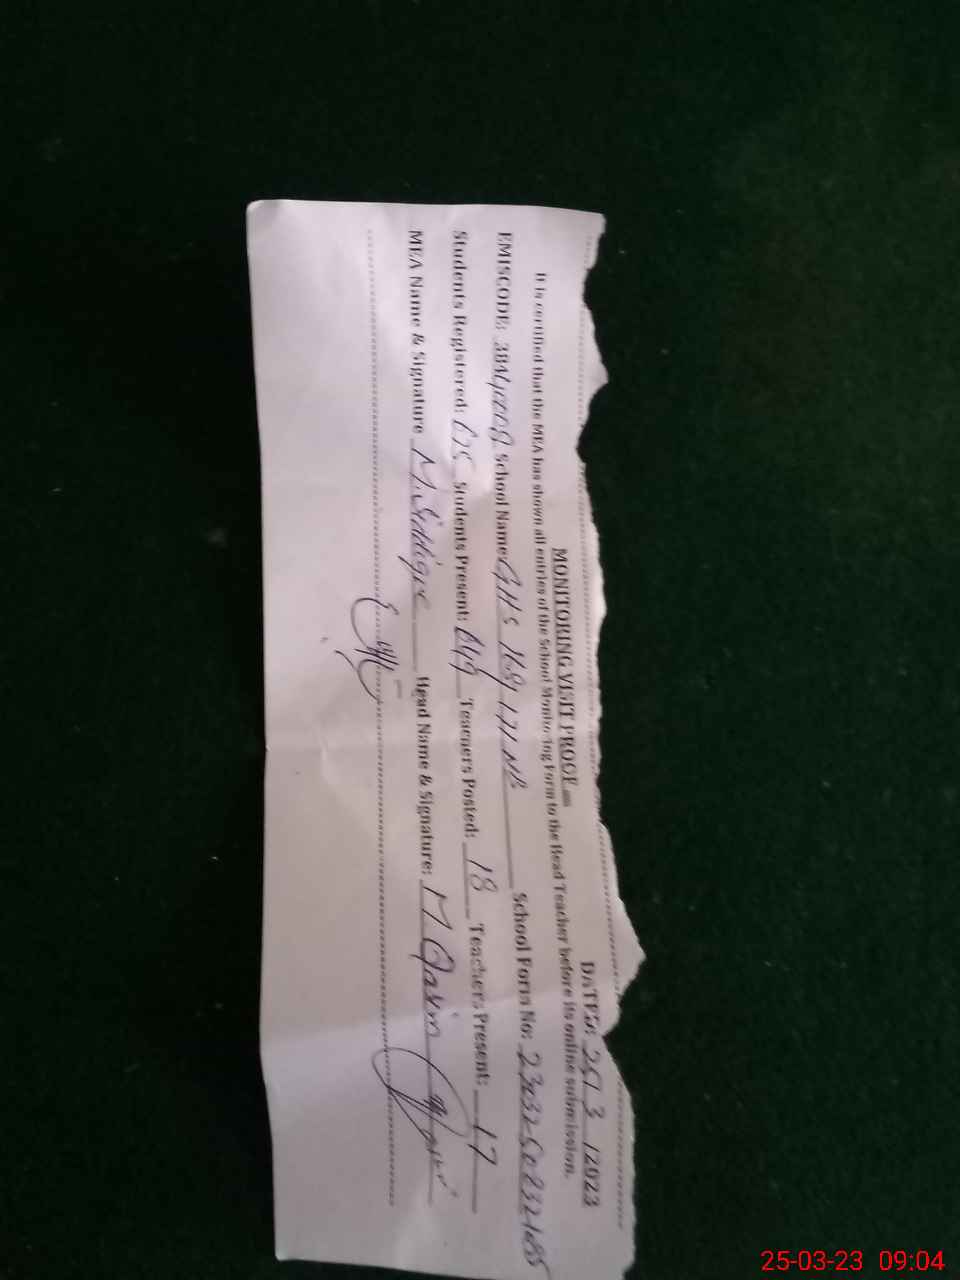 MONITORING VISIT PROOF DATED: 25/3/2023
It is certified that the MEA has shown all entries of the School Monitoring Form to the Head Teacher before its online submission.
EMISCODE: School Name: GHS 168/171 NB School Form No:
Students Registered: Students Present: 649 Teachers Posted: 18 Teachers Present: 17
MEA Name & Signature M. Siddique Head Name & Signature: M. Qasim
25-03-23 09:04